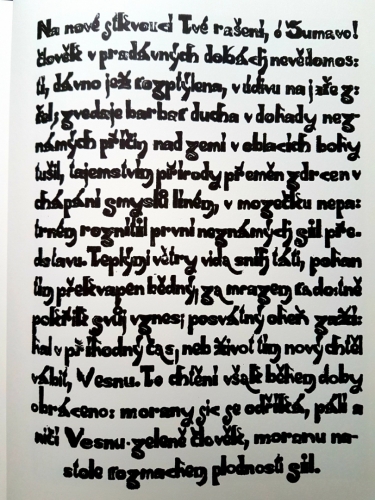 Na nové stkvoucí Tvé rašení, ó Šumavo!
člověk v pradávných dobách nevědomos:
ti, dávno jež rozptýlena, v údivu na jaře z:
řel; zvedaje barbar ducha v dohady nez
námých příčin nad zemí v oblacích bohy
tušil, tajemstvím přírody přeměn zdrcen v
chápání smyslů líném, v mozečku nepa:
trném roznítil první neznámých sil pře-
dstavu. Teplými větry vida sníh táti, pohan
tím překvapen bědný, za mrazem radostně
pokřik svůj vznesl posvátný oheň zaží:
hal v příhodný čas, neb život tím nový chtěl
vábit, Vesnu. To chtění však během doby
obráceno: morany sic se odříká, pálí a
ničí Vesnu zeleně člověk, moranu na-
stole rozmachem plodnosti sil.